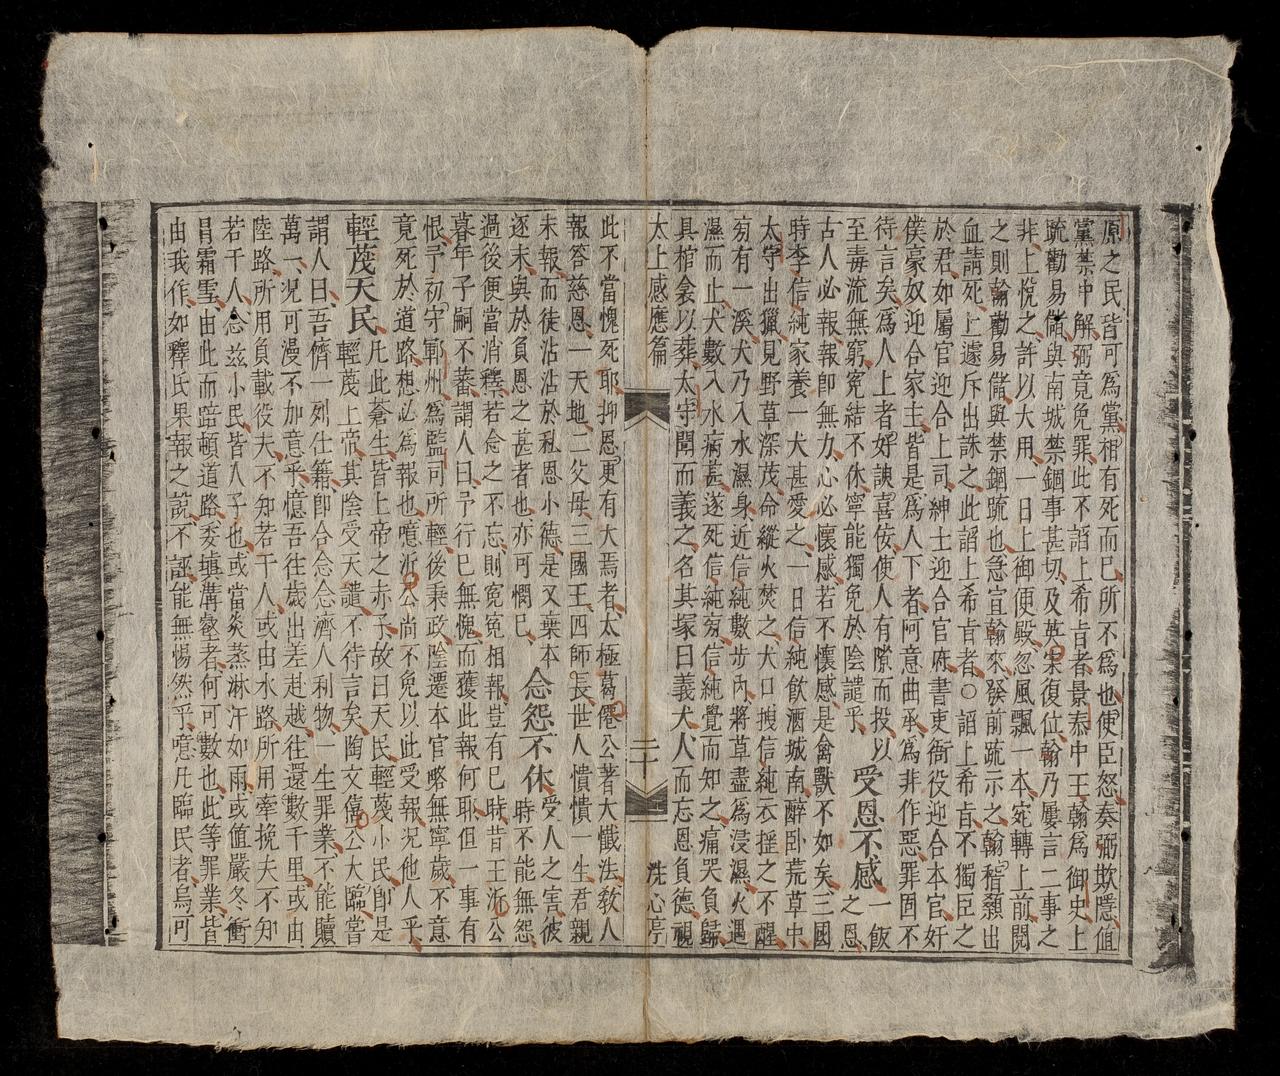 原之民皆可為黨相有死而已所不為也使臣怒奏弼欺隱值
黨禁中解弼竟免罪此不諂上希旨者景泰中王翰為御史上
疏勸易儲與南城禁錮事甚切及英宗復位翰乃屢言二事之
非上悅之許以大用一日上御便殿忽風飄一本宛轉上前閱
之則翰勸易儲與禁錮疏也急宣翰來發前疏示之翰稽顙出
血請死上遽斥出誅之此諂上希旨者○諂上希旨不獨臣之
於君如屬官迎合上司紳士迎合官府書吏衙役迎合本官奸
僕豪奴迎合家主皆是為人下者阿意曲承為非作惡罪固不
待言矣為人上者好諛喜佞使人有隙而投以
至毒流無窮冤結不休寧能獨免於陰譴乎 受恩不感 一飯之恩
古人必報報即無力心必懷感若不懷感是禽獸不如矣三國
時李信純家養一犬甚愛之一日信純飲酒城南醉臥荒草中
太守出獵見野草深茂命縱火焚之犬口拽信純衣搖之不醒
旁有一溪犬乃入水濕身近信純數步內將草盡為浸濕火遇
濕而止犬數入水病甚遂死信純旁信純覺而知之痛哭負歸
具棺衾以葬太守聞而義之名其塚曰義犬人而忘恩負德視
太上感應篇 二十 洗心亭
此不當愧死耶抑恩更有大焉者太極葛僊公著大懺法教人
報答慈恩一天地二父母三國王四師長世人憒憒一生君親
未報而徒沾沾於私恩小德是又棄本
逐末與於負恩之甚者也亦可憫已 念怨不休 受人之害彼時不能無怨
過後便當消釋若念之不忘則冤冤相報豈有已時昔王沂公
暮年子嗣不蕃謂人曰予行已無愧而獲此報何耶但一事有
恨予初守鄆州為監司所輕後秉政陰遷本官略無寧歲不意
竟死於道路想必為報也噫沂公尚不免以此受報況他人乎
輕蔑天民 凡此蒼生皆上帝之赤子故曰天民輕蔑小民即是輕蔑上帝其陰受天譴不待言矣陶文僖公大臨嘗
謂人曰吾儕一列仕籍即合念念濟人利物一生罪業不能贖
萬一況可漫不加意乎憶吾往歲出差赴越往還數千里或由
陸路所用負載役夫不知若干人或由水路所用牽挽夫不知
若干人念茲小民皆人子也或當炎蒸淋汗如雨或值嚴冬衝
冒霜雪由此而踣頓道路委填溝壑者何可數也此等罪業皆
由我作如釋氏果報之說不誣能無惕然乎噫凡臨民者烏可